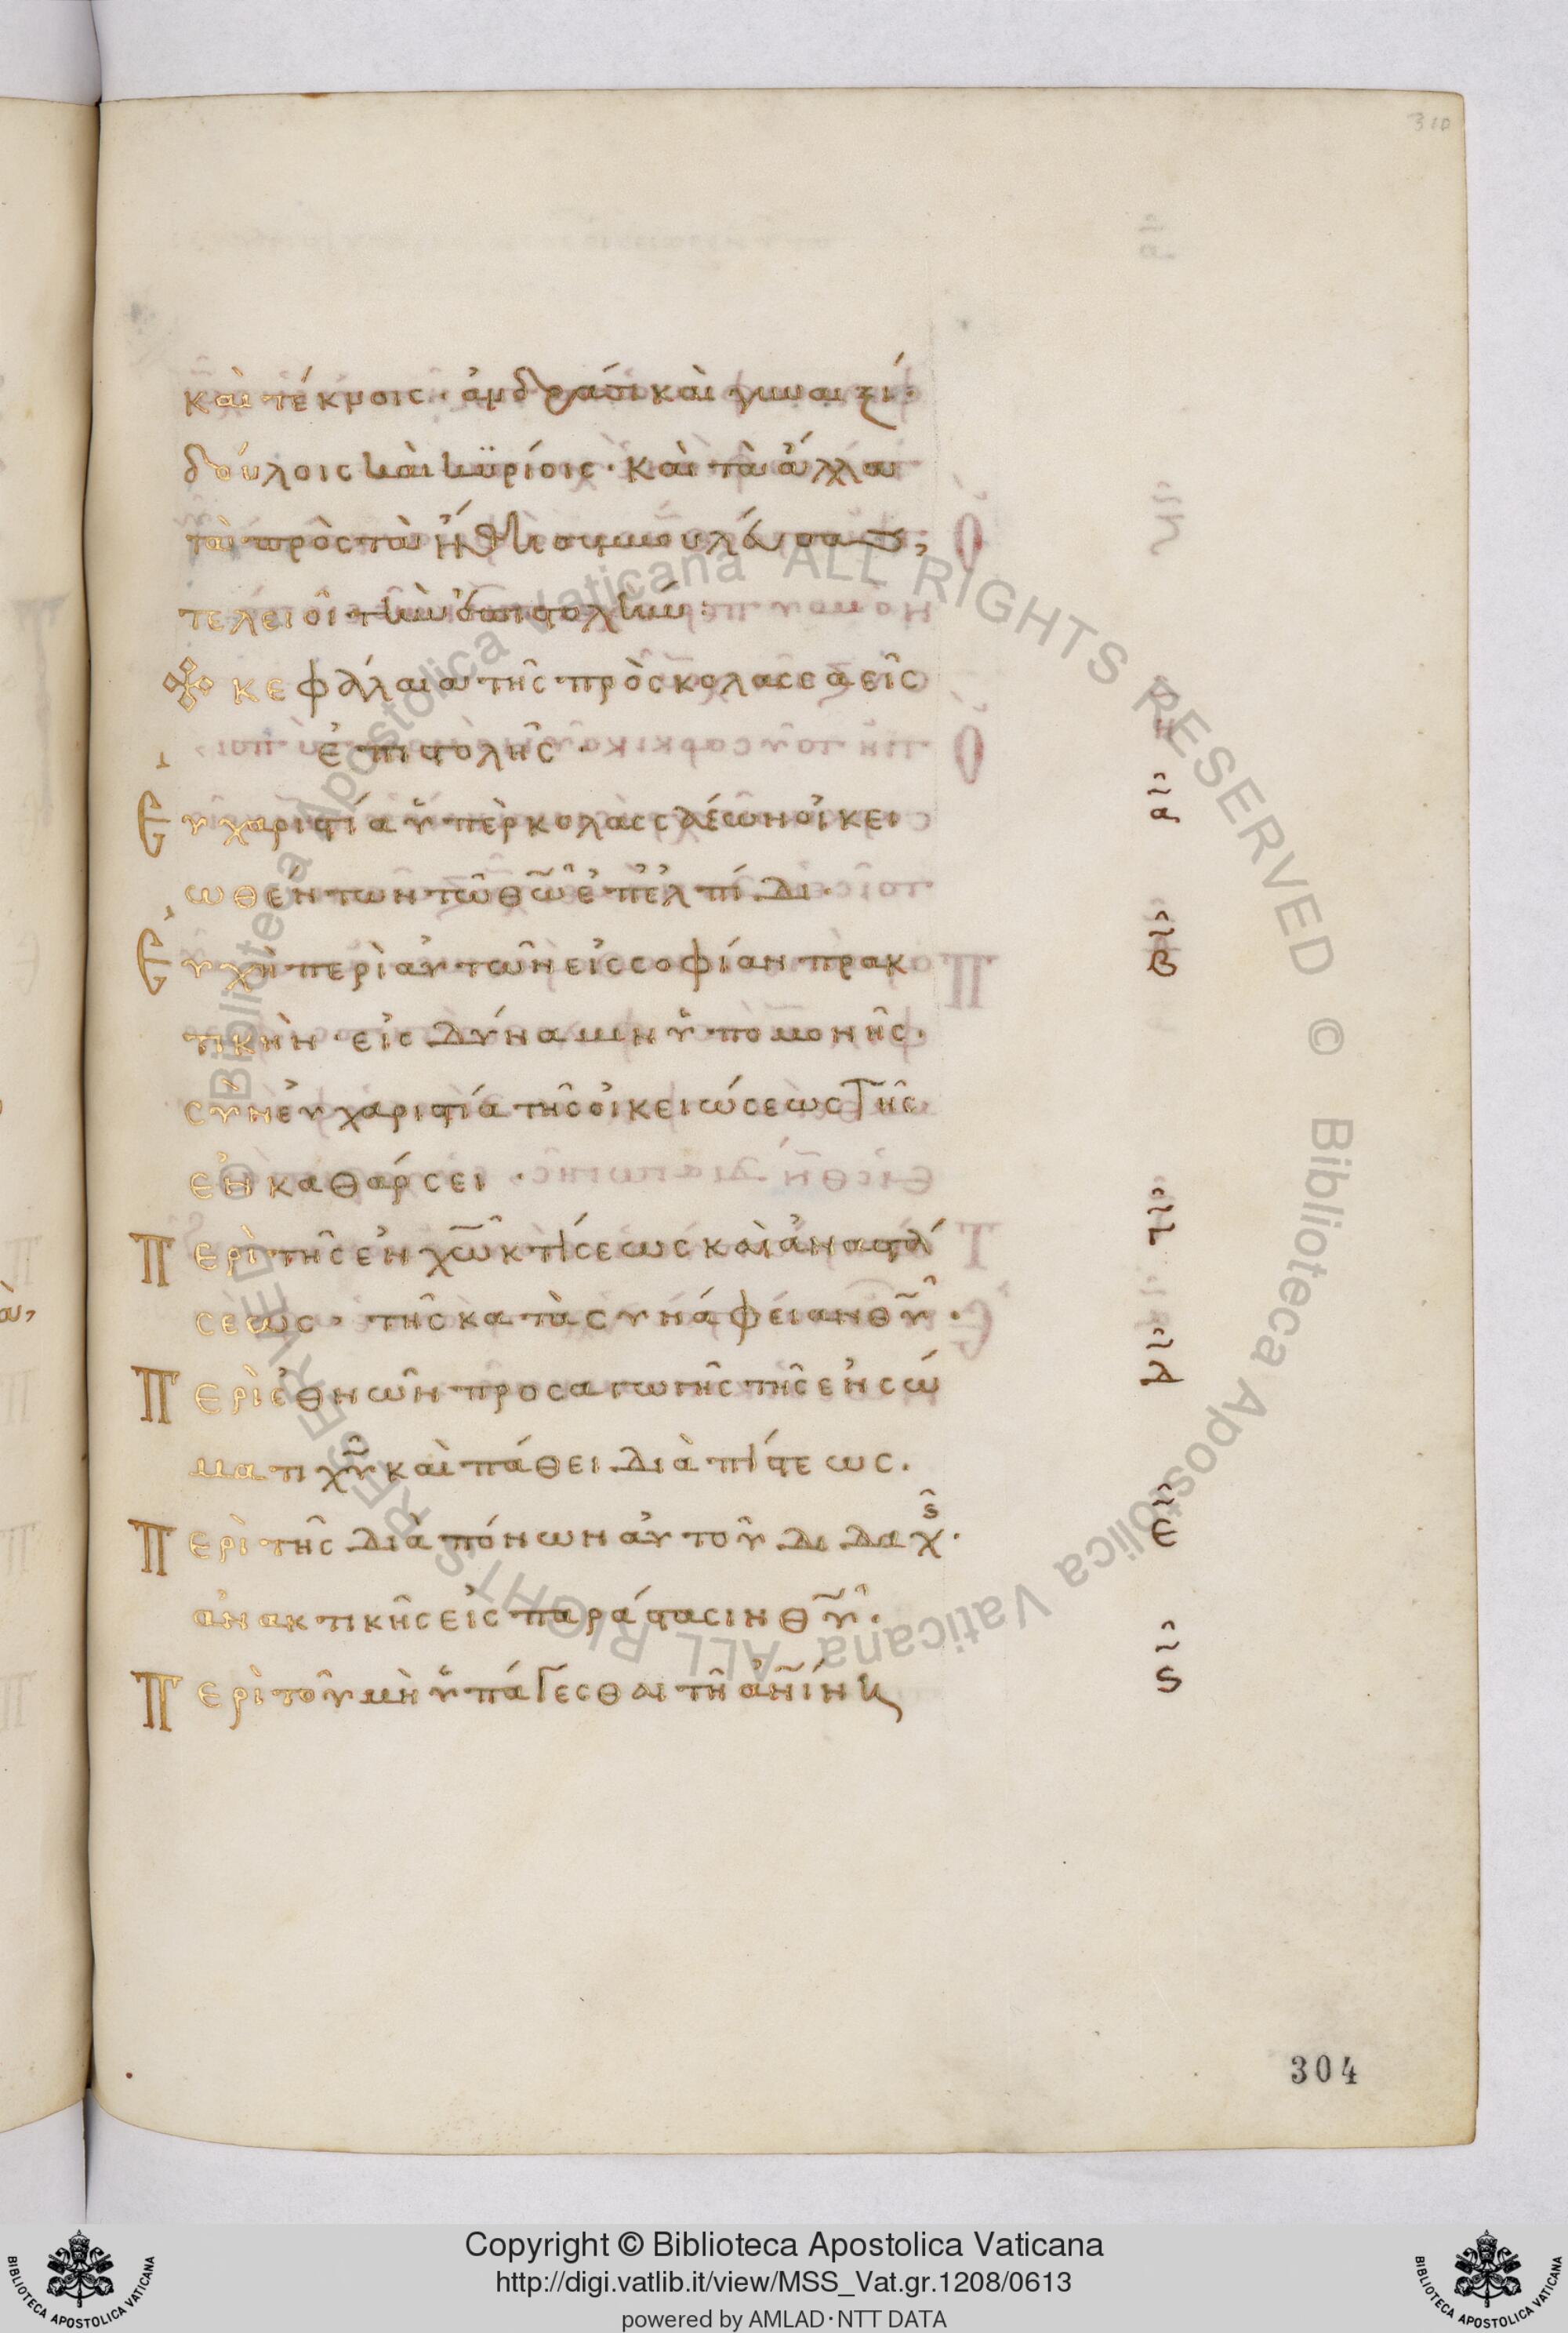 310
καὶ τέκνοις· ἀνδράσι καὶ γυναιξί·
δούλοις καὶ κυρίοις· καὶ τὰ ἄλλα
τὰ πρὸς τὰ ἤθη συμβουλεύσας,
τελειοῖ τὴν ἐπιστολήν:
κεφάλαια τῆς πρὸς κολασσαεῖς
ἐπιστολῆς·
Εὐχαριστία ὑπὲρ κολασσαέων οἰκει α
ωθέντων τῶ θῶ ἐπ' ἐλπίδι·
Εὐχὴ περὶ αὐτῶν εἰς σοφίαν πρακ β
τικὴν· εἰς δύναμιν ὑπομονῆς·
σὺν εὐχαριστία τῆς οἰκειώσεως τῆς
ἐν καθάρσει·
Περὶ τῆς ἐν χῶ κτίσεως καὶ ἀναστά γ
σεως· τῆς κατὰ συνάφειαν θῦ·
Περὶ ἐθνῶν προσαγωγῆς τῆς ἐν σώ δ
ματι χῦ καὶ πάθει διὰ πίστεως.
Περὶ τῆς διὰ πόνων αὐτοῦ διδαχῆς· ε
ἀνακτικῆς εἰς παράστασιν θῦ·
Περὶ τοῦ μὴ ὑπάγεσθαι τῆ ἀνίνη ϛ
304
Copyright © Biblioteca Apostolica Vaticana
http://digi.vatlib.it/view/MSS_Vat.gr.1208/0613
powered by AMLAD·NTT DATA
BIBLIOTECA APOSTOLICA VATICANA
BIBLIOTECA APOSTOLICA VATICANA
©Biblioteca Apostolica Vaticana ALL RIGHTS RESERVED © Biblioteca Apostolica Vaticana ALL RIGHTS RESERVED